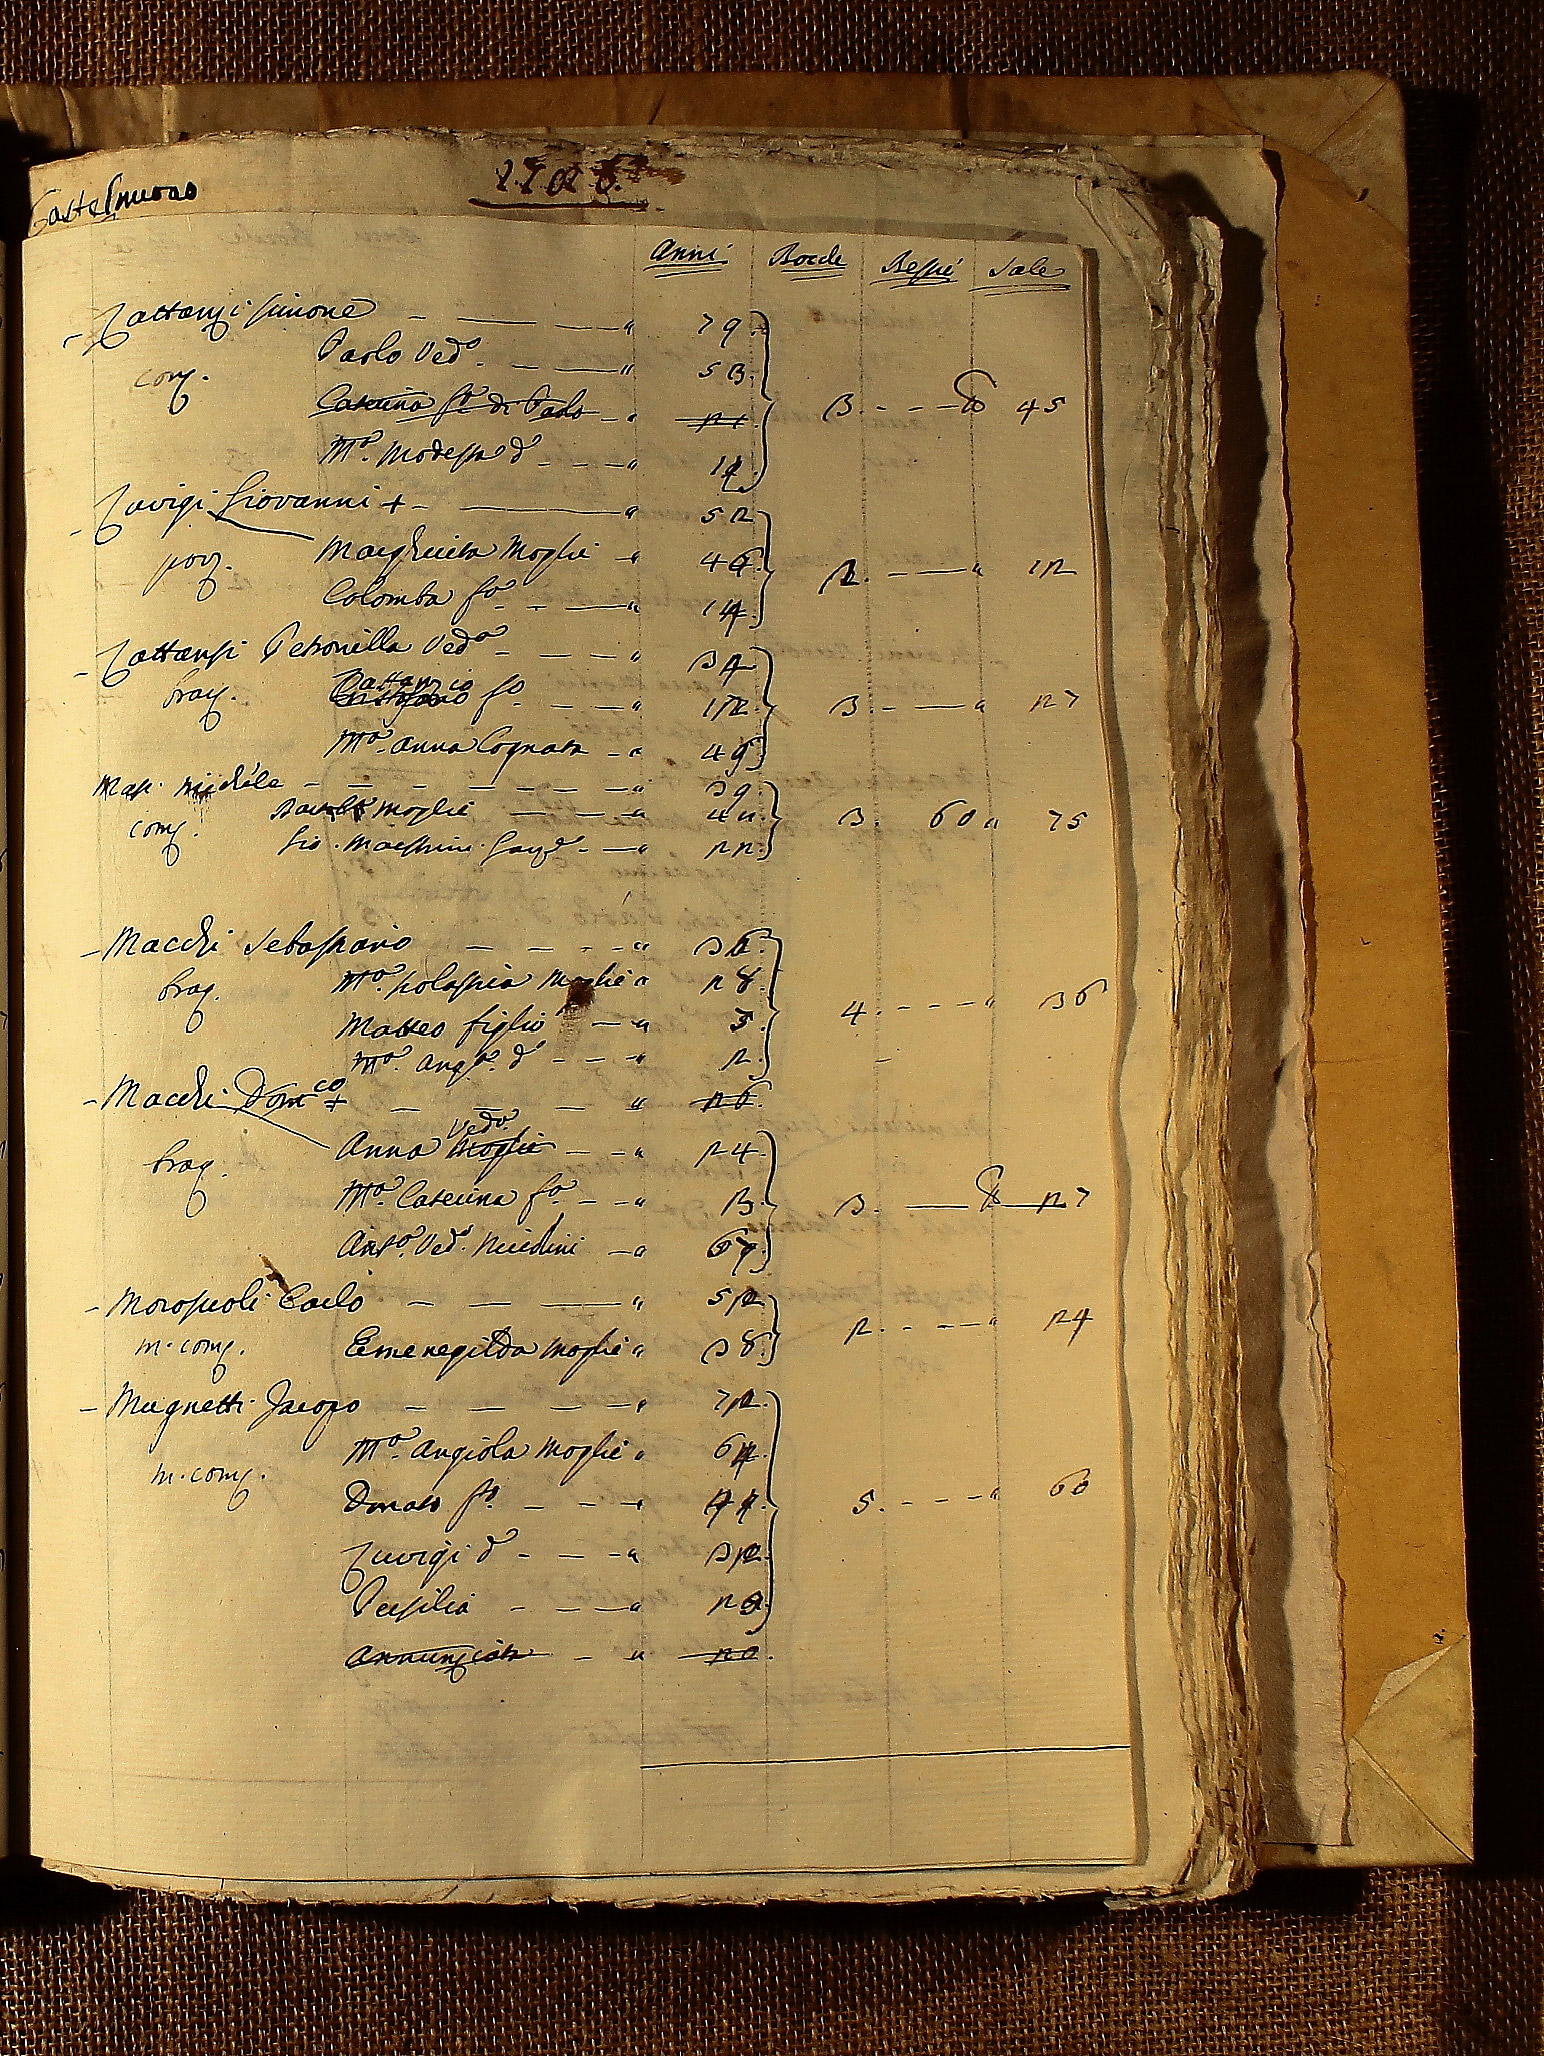 Castelnuovo
Anni Bocche Bestie Sale
- Lattanzi Simone - — — " 79.
Paolo Vedo. - — " 53.
comg. Caterina fa. di Paolo - " 3. - - - 6 45
Ma. Modesta da - - - " 14
- Luvigi Giovanni + - — — " 52
Margherita Moglie - " 46.
Colomba fa. - — " 14. 2. - — " 12
- Lattanzi Petronilla Veda. - - - " 34
brag. Lattanzio fo. - - - " 12. 3. - — " 27
Ma. Anna Cognata - " 49.
Mas. Michele - - - - - - " 39.
comg. moglie - - - " 3. 60 " 75
Gio. — " 22.
- Macchi Sebastiano - - - - " 36.
brag. Ma. Scolastica Moglie " 28.
Matteo figlio — " 5. 4. - - - " 36
Ma. Anga. da - - - " 2.
- Macchi Domco + - - - " 26.
Veda.
brag. Anna Moglie - - " 24.
Ma. Caterina fa. - - " 3. 3. — 6 — 27
Anta. Veda. - " 67.
- Moroscioli Carlo - - — " 52.
m. comg. Ermenegilda Moglie " 38. 2. - - - " 24
- Mugnetti Jacopo - - - - " 72.
m. comg. Ma. Angiola Moglie " 64.
Donato fo. - - - " 44. 5. - - - " 60
Luvigi do - - - " 32.
Persilia - - - "
Annunciata - " 20.